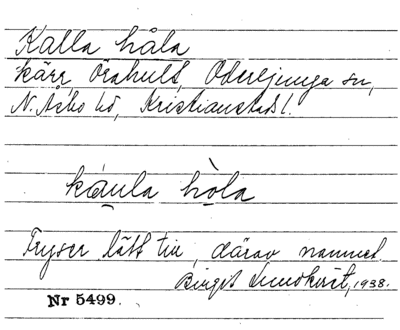 Kalla håla
kärr Örahult, Oderljunga sn,
N. Åsbo hd, Kristianstads l.
káula hòla
Fryser lätt till, därav namnet
Birgit Lundkvist, 1938.
Nr 5499.